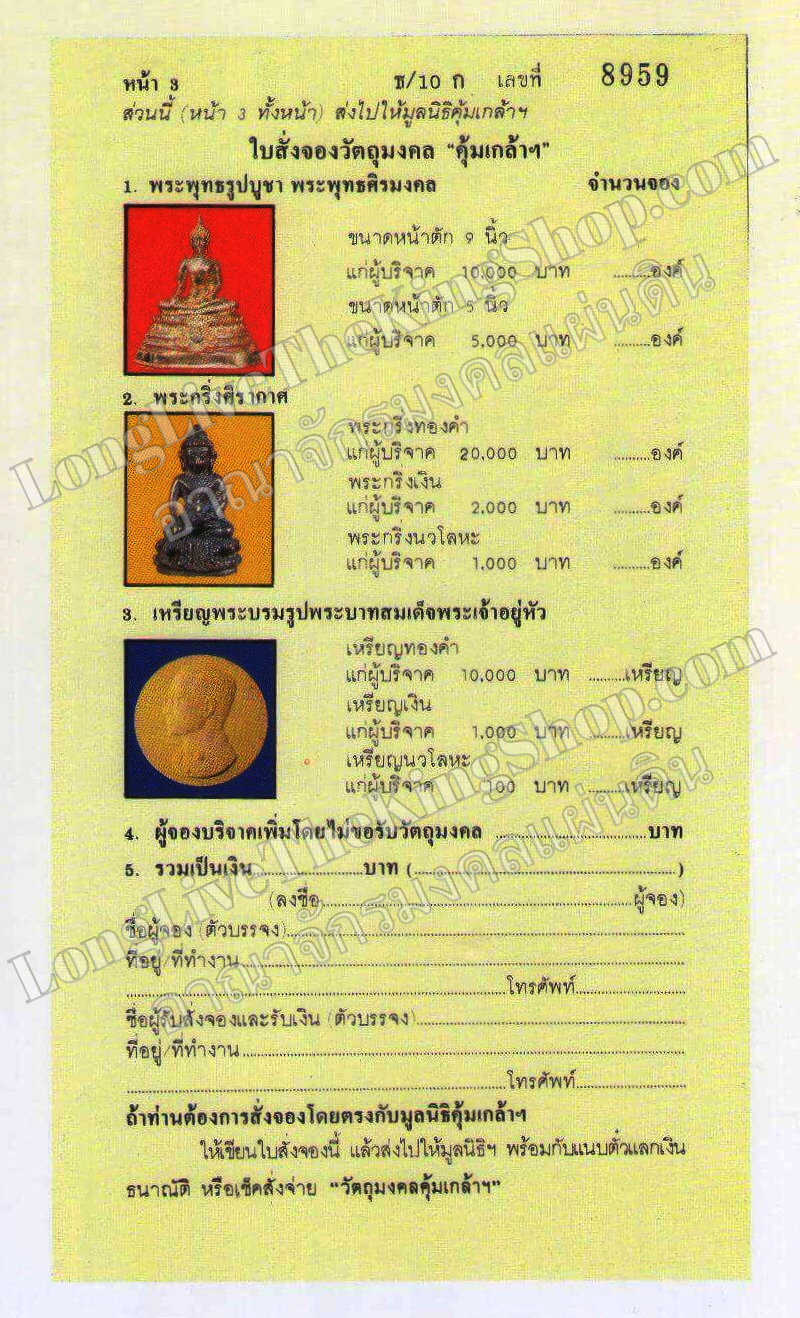 หน้า 3 ธ/10 ก เลขที่ 8959
ส่วนนี้ (หน้า 3 ทั้งหน้า) ส่งไปให้มูลนิธิคุ้มเกล้าฯ
ใบสั่งจองวัตถุมงคล "คุ้มเกล้าฯ"
1. พระพุทธรูปบูชา พระพุทธศิรมงคล จำนวนจอง
ขนาดหน้าตัก 9 นิ้ว
แก่ผู้บริจาค 10,000 บาท ..........องค์
ขนาดหน้าตัก 5 นิ้ว
แก่ผู้บริจาค 5,000 บาท ..........องค์
2. พระกริ่งศิรากาศ
พระกริ่งทองคำ
แก่ผู้บริจาค 20,000 บาท ..........องค์
พระกริ่งเงิน
แก่ผู้บริจาค 2,000 บาท ..........องค์
พระกริ่งนวโลหะ
แก่ผู้บริจาค 1,000 บาท ..........องค์
3. เหรียญพระบรมรูปพระบาทสมเด็จพระเจ้าอยู่หัว
เหรียญทองคำ
แก่ผู้บริจาค 10,000 บาท ..........เหรียญ
เหรียญเงิน
แก่ผู้บริจาค 1,000 บาท ..........เหรียญ
เหรียญนวโลหะ
แก่ผู้บริจาค 100 บาท ..........เหรียญ
4. ผู้จองบริจาคเพิ่มโดยไม่ขอรับวัตถุมงคล ..........บาท
5. รวมเป็นเงิน..........บาท (..........)
(ลงชื่อ..........ผู้จอง)
ชื่อผู้จอง (ตัวบรรจง)..........
ที่อยู่/ที่ทำงาน..........
..........โทรศัพท์..........
ชื่อผู้รับสั่งจองและรับเงิน (ตัวบรรจง)..........
ที่อยู่/ที่ทำงาน..........
..........โทรศัพท์..........
ถ้าท่านต้องการสั่งจองโดยตรงกับมูลนิธิคุ้มเกล้าฯ
ให้เขียนใบสั่งจองนี้ แล้วส่งไปให้มูลนิธิฯ พร้อมกับแนบตั๋วแลกเงิน
ธนาณัติ หรือเช็คสั่งจ่าย "วัตถุมงคลคุ้มเกล้าฯ"
LongLiveTheKingShop.com
อาณาจักรมงคลแผ่นดิน
LongLiveTheKingShop.com
อาณาจักรมงคลแผ่นดิน